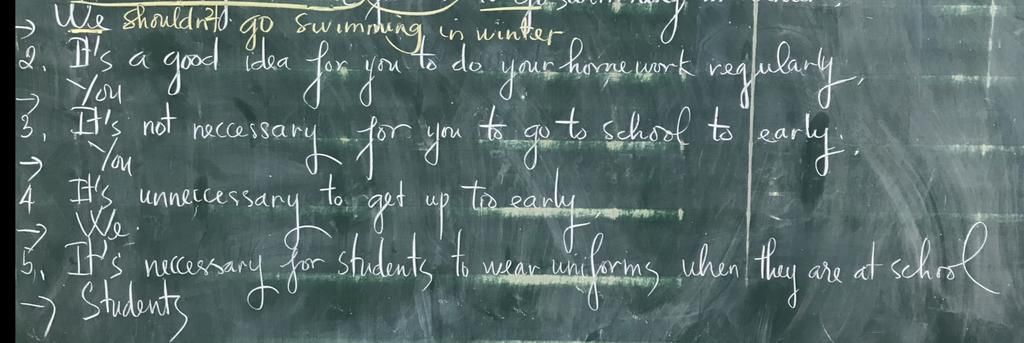 → We shouldn't go swimming in winter
2. It's a good idea for you to do your homework regularly.
→ You
3. It's not neccessary for you to go to school to early.
→ You
4 It's unneccessary to get up too early
→ We.
5. It's neccessary for students to wear uniforms when they are at school
→ Students